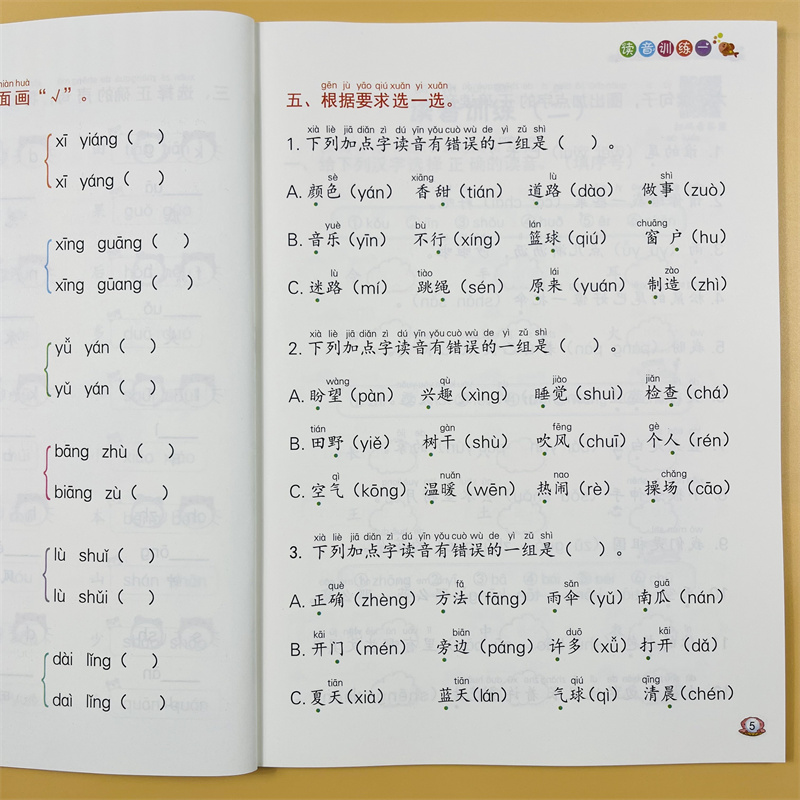 miàn huà
面画“√”。
xī yiáng（ ）
xī yáng（ ）
xīng guāng（ ）
xīng gūang（ ）
yǚ yán（ ）
yǔ yán（ ）
bāng zhù（ ）
biāng zù（ ）
lù shuǐ（ ）
lù shǔi（ ）
dài lǐng（ ）
daì lǐng（ ）
读音训练一
gēn jù yāo qiú xuǎn yi xuǎn
五、根据要求选一选。
xià liè jiā diǎn zì dú yīn yǒu cuò wù de yì zǔ shì
1. 下列加点字读音有错误的一组是（ ）。
sè xiāng lù shì
A. 颜色（yán） 香甜（tián） 道路（dào） 做事（zuò）
yuè bù lán chuāng
B. 音乐（yīn） 不行（xíng） 篮球（qiú） 窗户（hu）
lù tiào lái zào
C. 迷路（mí） 跳绳（sén） 原来（yuán） 制造（zhì）
xià liè jiā diǎn zì dú yīn yǒu cuò wù de yì zǔ shì
2. 下列加点字读音有错误的一组是（ ）。
wàng qù jiào jiǎn
A. 盼望（pàn） 兴趣（xìng） 睡觉（shuì） 检查（chá）
tián gàn fēng gè
B. 田野（yiě） 树干（shù） 吹风（chuī） 个人（rén）
qì nuǎn nao chǎng
C. 空气（kōng） 温暖（wēn） 热闹（rè） 操场（cāo）
xià liè jiā diǎn zì dú yīn yǒu cuò wù de yì zǔ shì
3. 下列加点字读音有错误的一组是（ ）。
què fǎ sǎn guā
A. 正确（zhèng） 方法（fāng） 雨伞（yǔ） 南瓜（nán）
kāi biān duō kāi
B. 开门（mén） 旁边（páng） 许多（xǚ） 打开（dǎ）
tiān tiān qiú qīng
C. 夏天（xià） 蓝天（lán） 气球（qì） 清晨（chén）
5